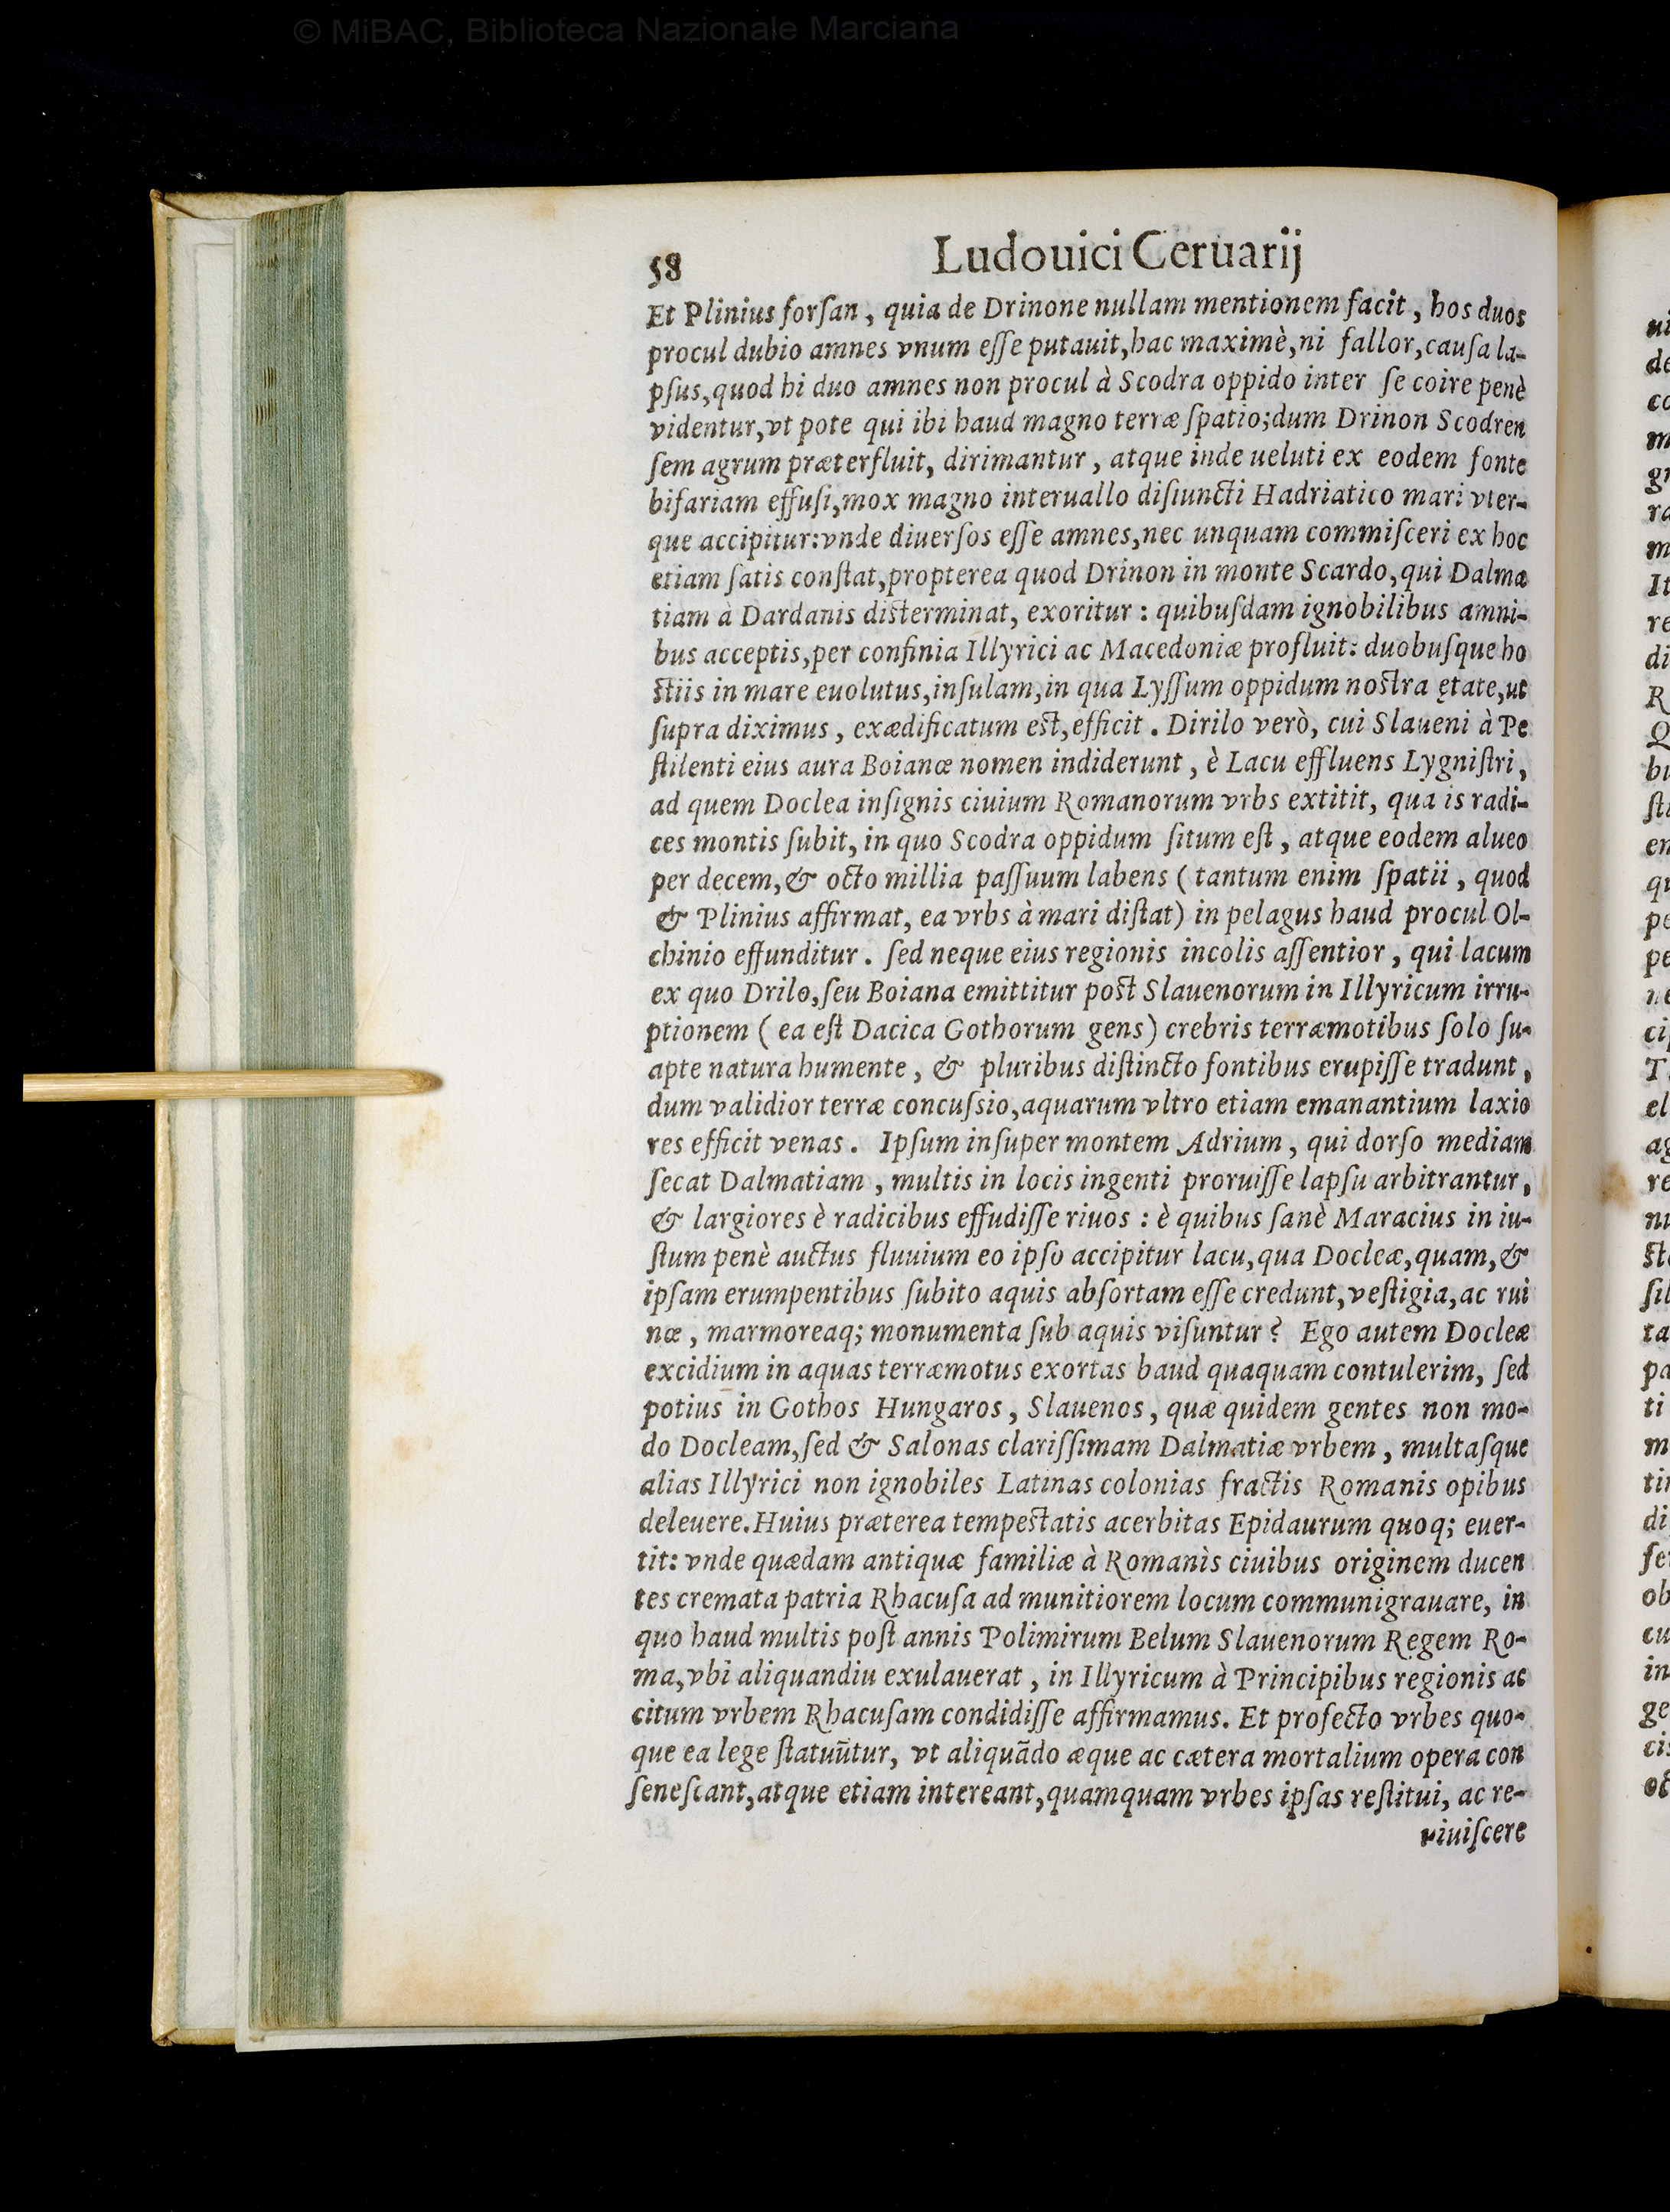 © MiBAC, Biblioteca Nazionale Marciana
58
Ludouici Ceruarij
Et Plinius forſan, quia de Drinone nullam mentionem facit, hos duos
procul dubio amnes vnum eſſe putauit, hac maximè, ni fallor, cauſa la-
pſus, quod hi duo amnes non procul à Scodra oppido inter ſe coire penè
videntur, vt pote qui ibi haud magno terræ ſpatio; dum Drinon Scodren
ſem agrum præterfluit, dirimantur, atque inde ueluti ex eodem fonte
bifariam effuſi, mox magno interuallo diſiuncti Hadriatico mari vter-
que accipitur: vnde diuerſos eſſe amnes, nec unquam commiſceri ex hoc
etiam ſatis conſtat, propterea quod Drinon in monte Scardo, qui Dalmæ
tiam à Dardanis disterminat, exoritur: quibuſdam ignobilibus amni-
bus acceptis, per confinia Illyrici ac Macedoniæ profluit: duobuſque ho
stiis in mare euolutus, inſulam, in qua Lyſſum oppidum nostra ętate, ut
ſupra diximus, exædificatum est, efficit. Dirilo verò, cui Slaueni à Pe
ſtilenti eius aura Boianœ nomen indiderunt, è Lacu effluens Lygniſtri,
ad quem Doclea inſignis ciuium Romanorum vrbs extitit, qua is radi-
ces montis ſubit, in quo Scodra oppidum ſitum eſt, atque eodem alueo
per decem, & octo millia paſſuum labens (tantum enim ſpatii, quod
& Plinius affirmat, ea vrbs à mari diſtat) in pelagus haud procul Ol-
chinio effunditur. ſed neque eius regionis incolis aſſentior, qui lacum
ex quo Drilo, ſeu Boiana emittitur post Slauenorum in Illyricum irru-
ptionem (ea eſt Dacica Gothorum gens) crebris terræmotibus ſolo ſu-
apte natura humente, & pluribus diſtincto fontibus erupiſſe tradunt,
dum validior terræ concuſsio, aquarum vltro etiam emanantium laxio
res efficit venas. Ipſum inſuper montem Adrium, qui dorſo mediam
ſecat Dalmatiam, multis in locis ingenti proruiſſe lapſu arbitrantur,
& largiores è radicibus effudiſſe riuos: è quibus ſanè Maracius in iu-
ſtum penè auctus fluuium eo ipſo accipitur lacu, qua Docleæ, quam, &
ipſam erumpentibus ſubito aquis abſortam eſſe credunt, veſtigia, ac rui
nœ, marmoreaq; monumenta ſub aquis viſuntur? Ego autem Docleæ
excidium in aquas terræmotus exortas haud quaquam contulerim, ſed
potius in Gothos Hungaros, Slauenos, quæ quidem gentes non mo-
do Docleam, ſed & Salonas clariſſimam Dalmatiæ vrbem, multaſque
alias Illyrici non ignobiles Latinas colonias fractis Romanis opibus
deleuere. Huius præterea tempestatis acerbitas Epidaurum quoq; euer-
tit: vnde quædam antiquæ familiæ à Romanìs ciuibus originem ducen
tes cremata patria Rhacuſa ad munitiorem locum communigrauare, in
quo haud multis poſt annis Polimirum Belum Slauenorum Regem Ro-
ma, vbi aliquandiu exulauerat, in Illyricum à Principibus regionis ac
citum vrbem Rhacuſam condidiſſe affirmamus. Et profecto vrbes quo-
que ea lege ſtatuūtur, vt aliquādo æque ac cætera mortalium opera con
ſeneſcant, atque etiam intereant, quamquam vrbes ipſas reſtitui, ac re-
uiuiſcere